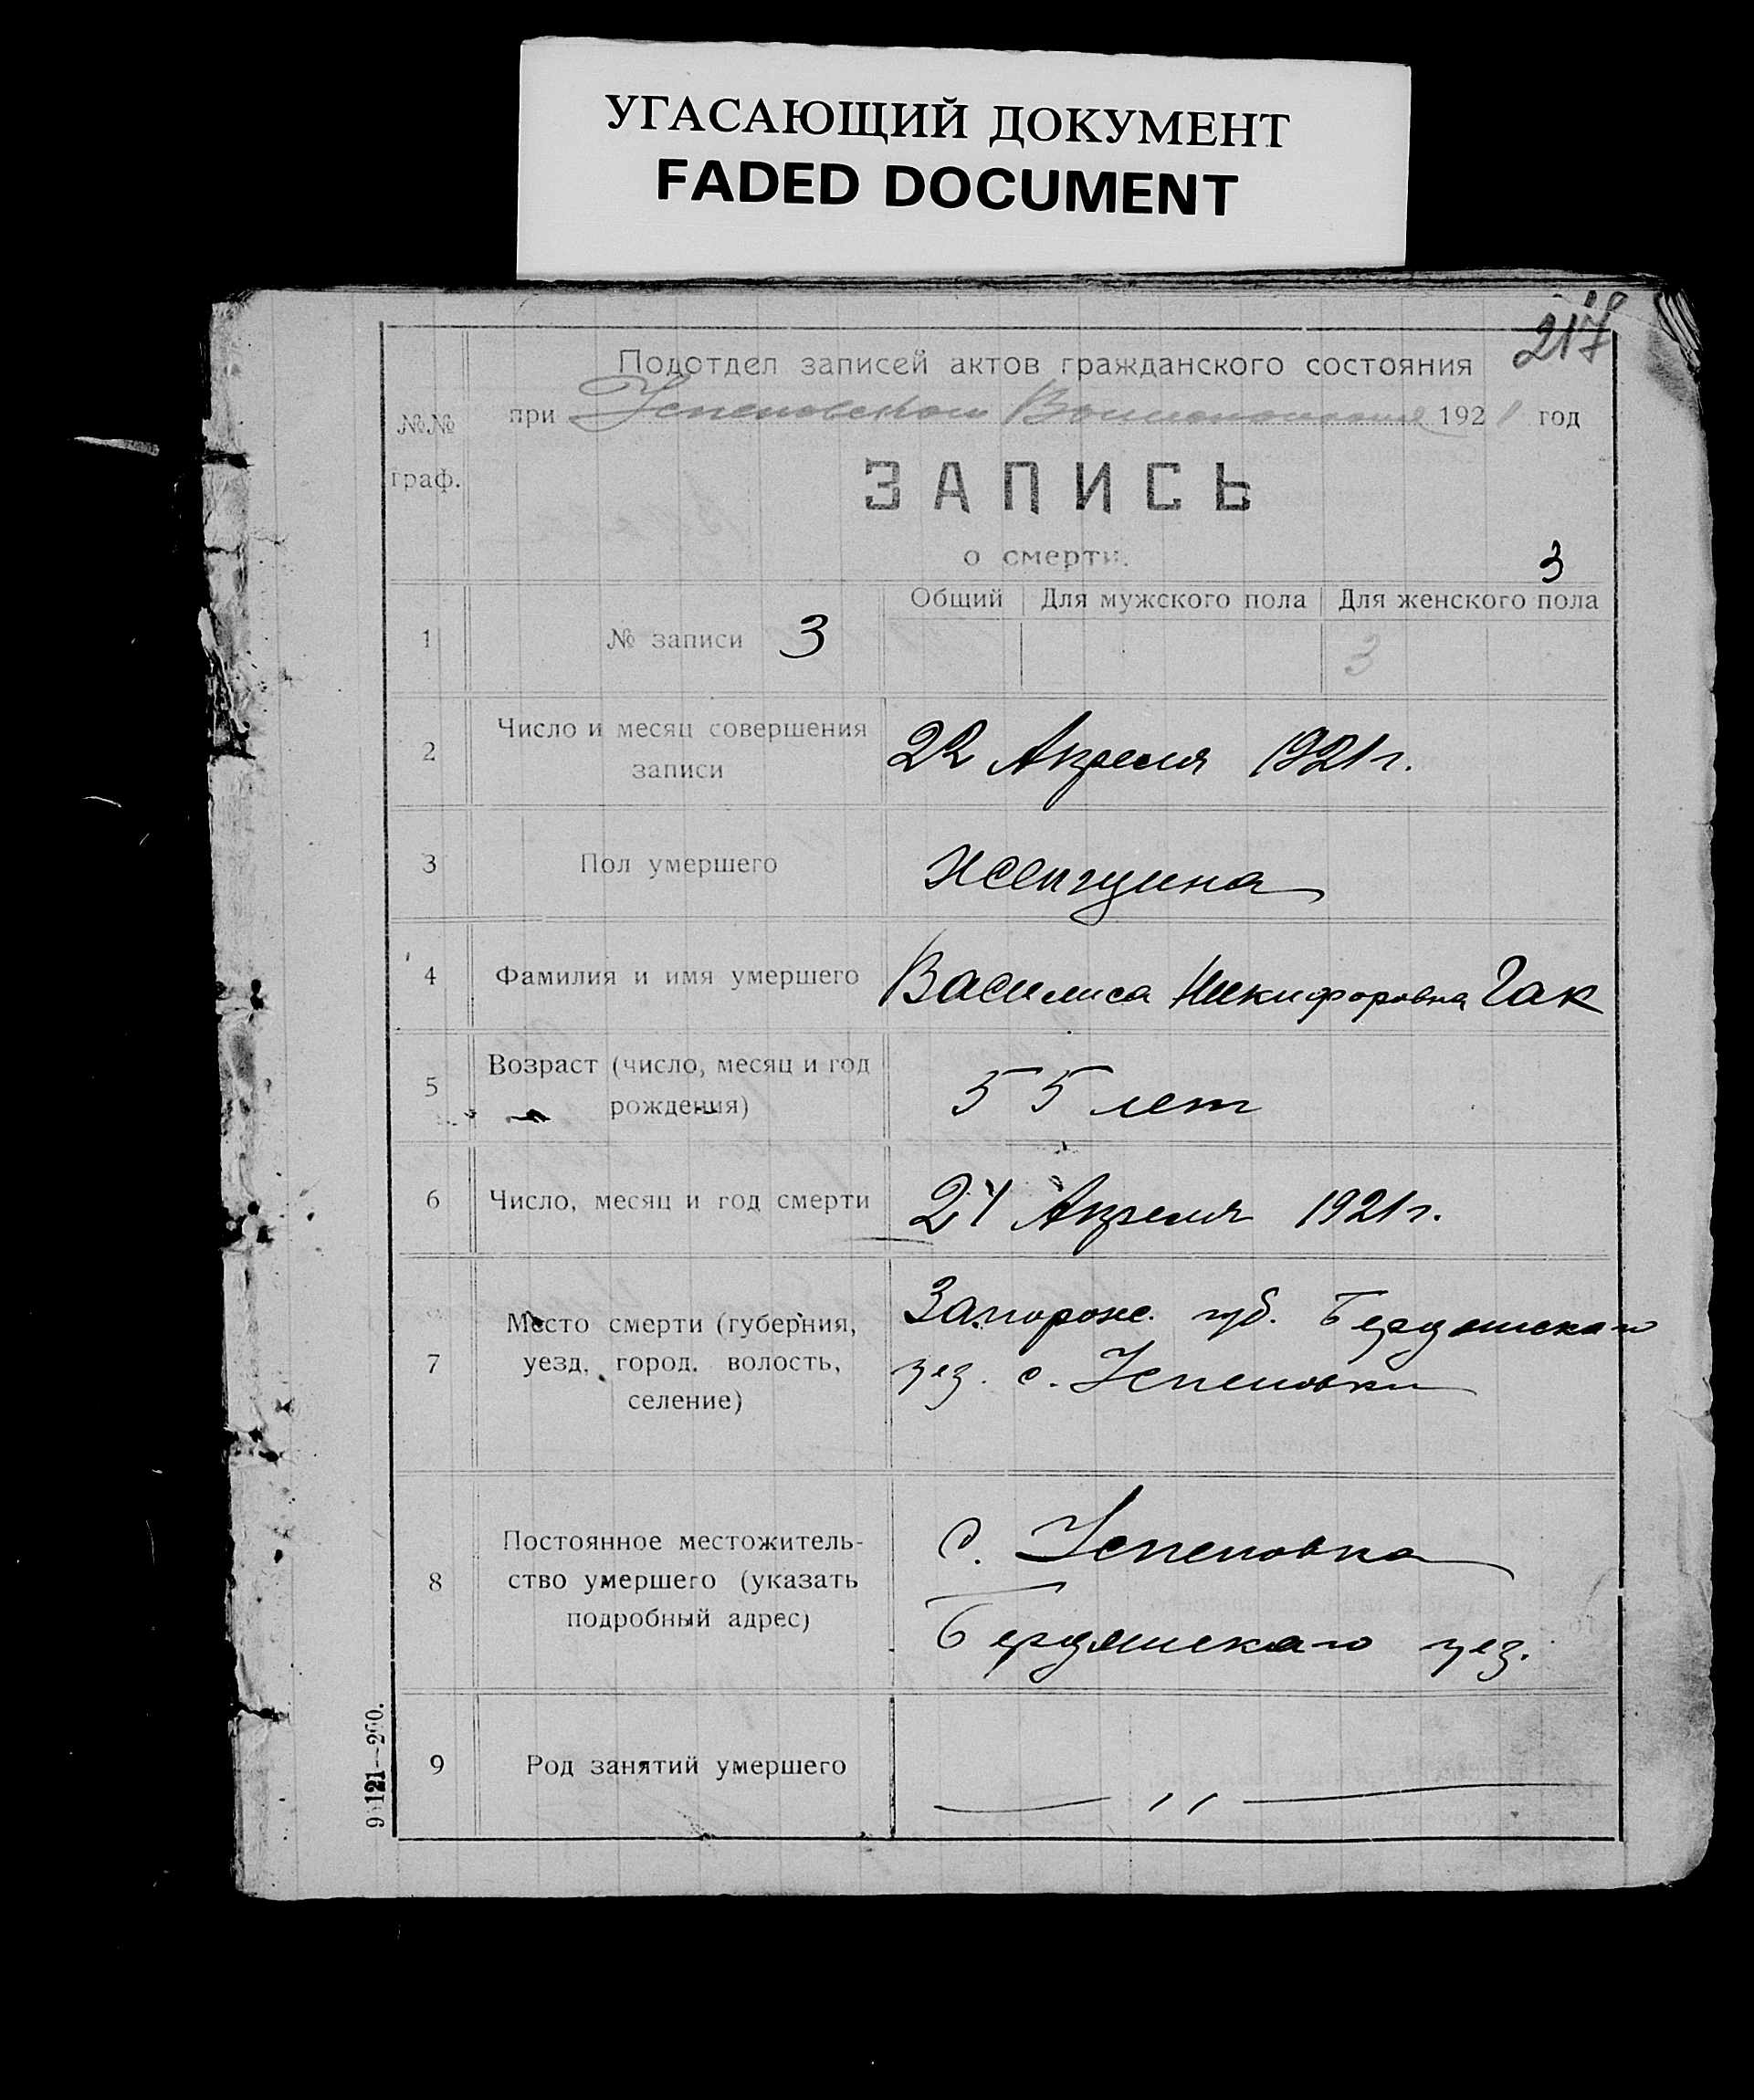 УГАСАЮЩИЙ ДОКУМЕНТ
FADED DOCUMENT
217
Подотдел записей актов гражданского состояния
при Успеновском 1921 год
№№ граф.
ЗАПИСЬ
о смерти.
3
Общий Для мужского пола Для женского пола
1 № записи 3 3
2 Число и месяц совершения
записи
22 Апреля 1921 г.
3 Пол умершего Женщина
4 Фамилия и имя умершего Василиса Никифоровна Гак
5 Возраст (число, месяц и год
рождения)
55 лет
6 Число, месяц и год смерти 21 Апреля 1921 г.
7 Место смерти (губерния,
уезд, город, волость,
селение)
Запорож. губ. Бердянскаго
уез. с. Успеновки
8 Постоянное местожитель-
ство умершего (указать
подробный адрес)
с. Успеновка
Бердянскаго уез.
9 Род занятий умершего — ,, —